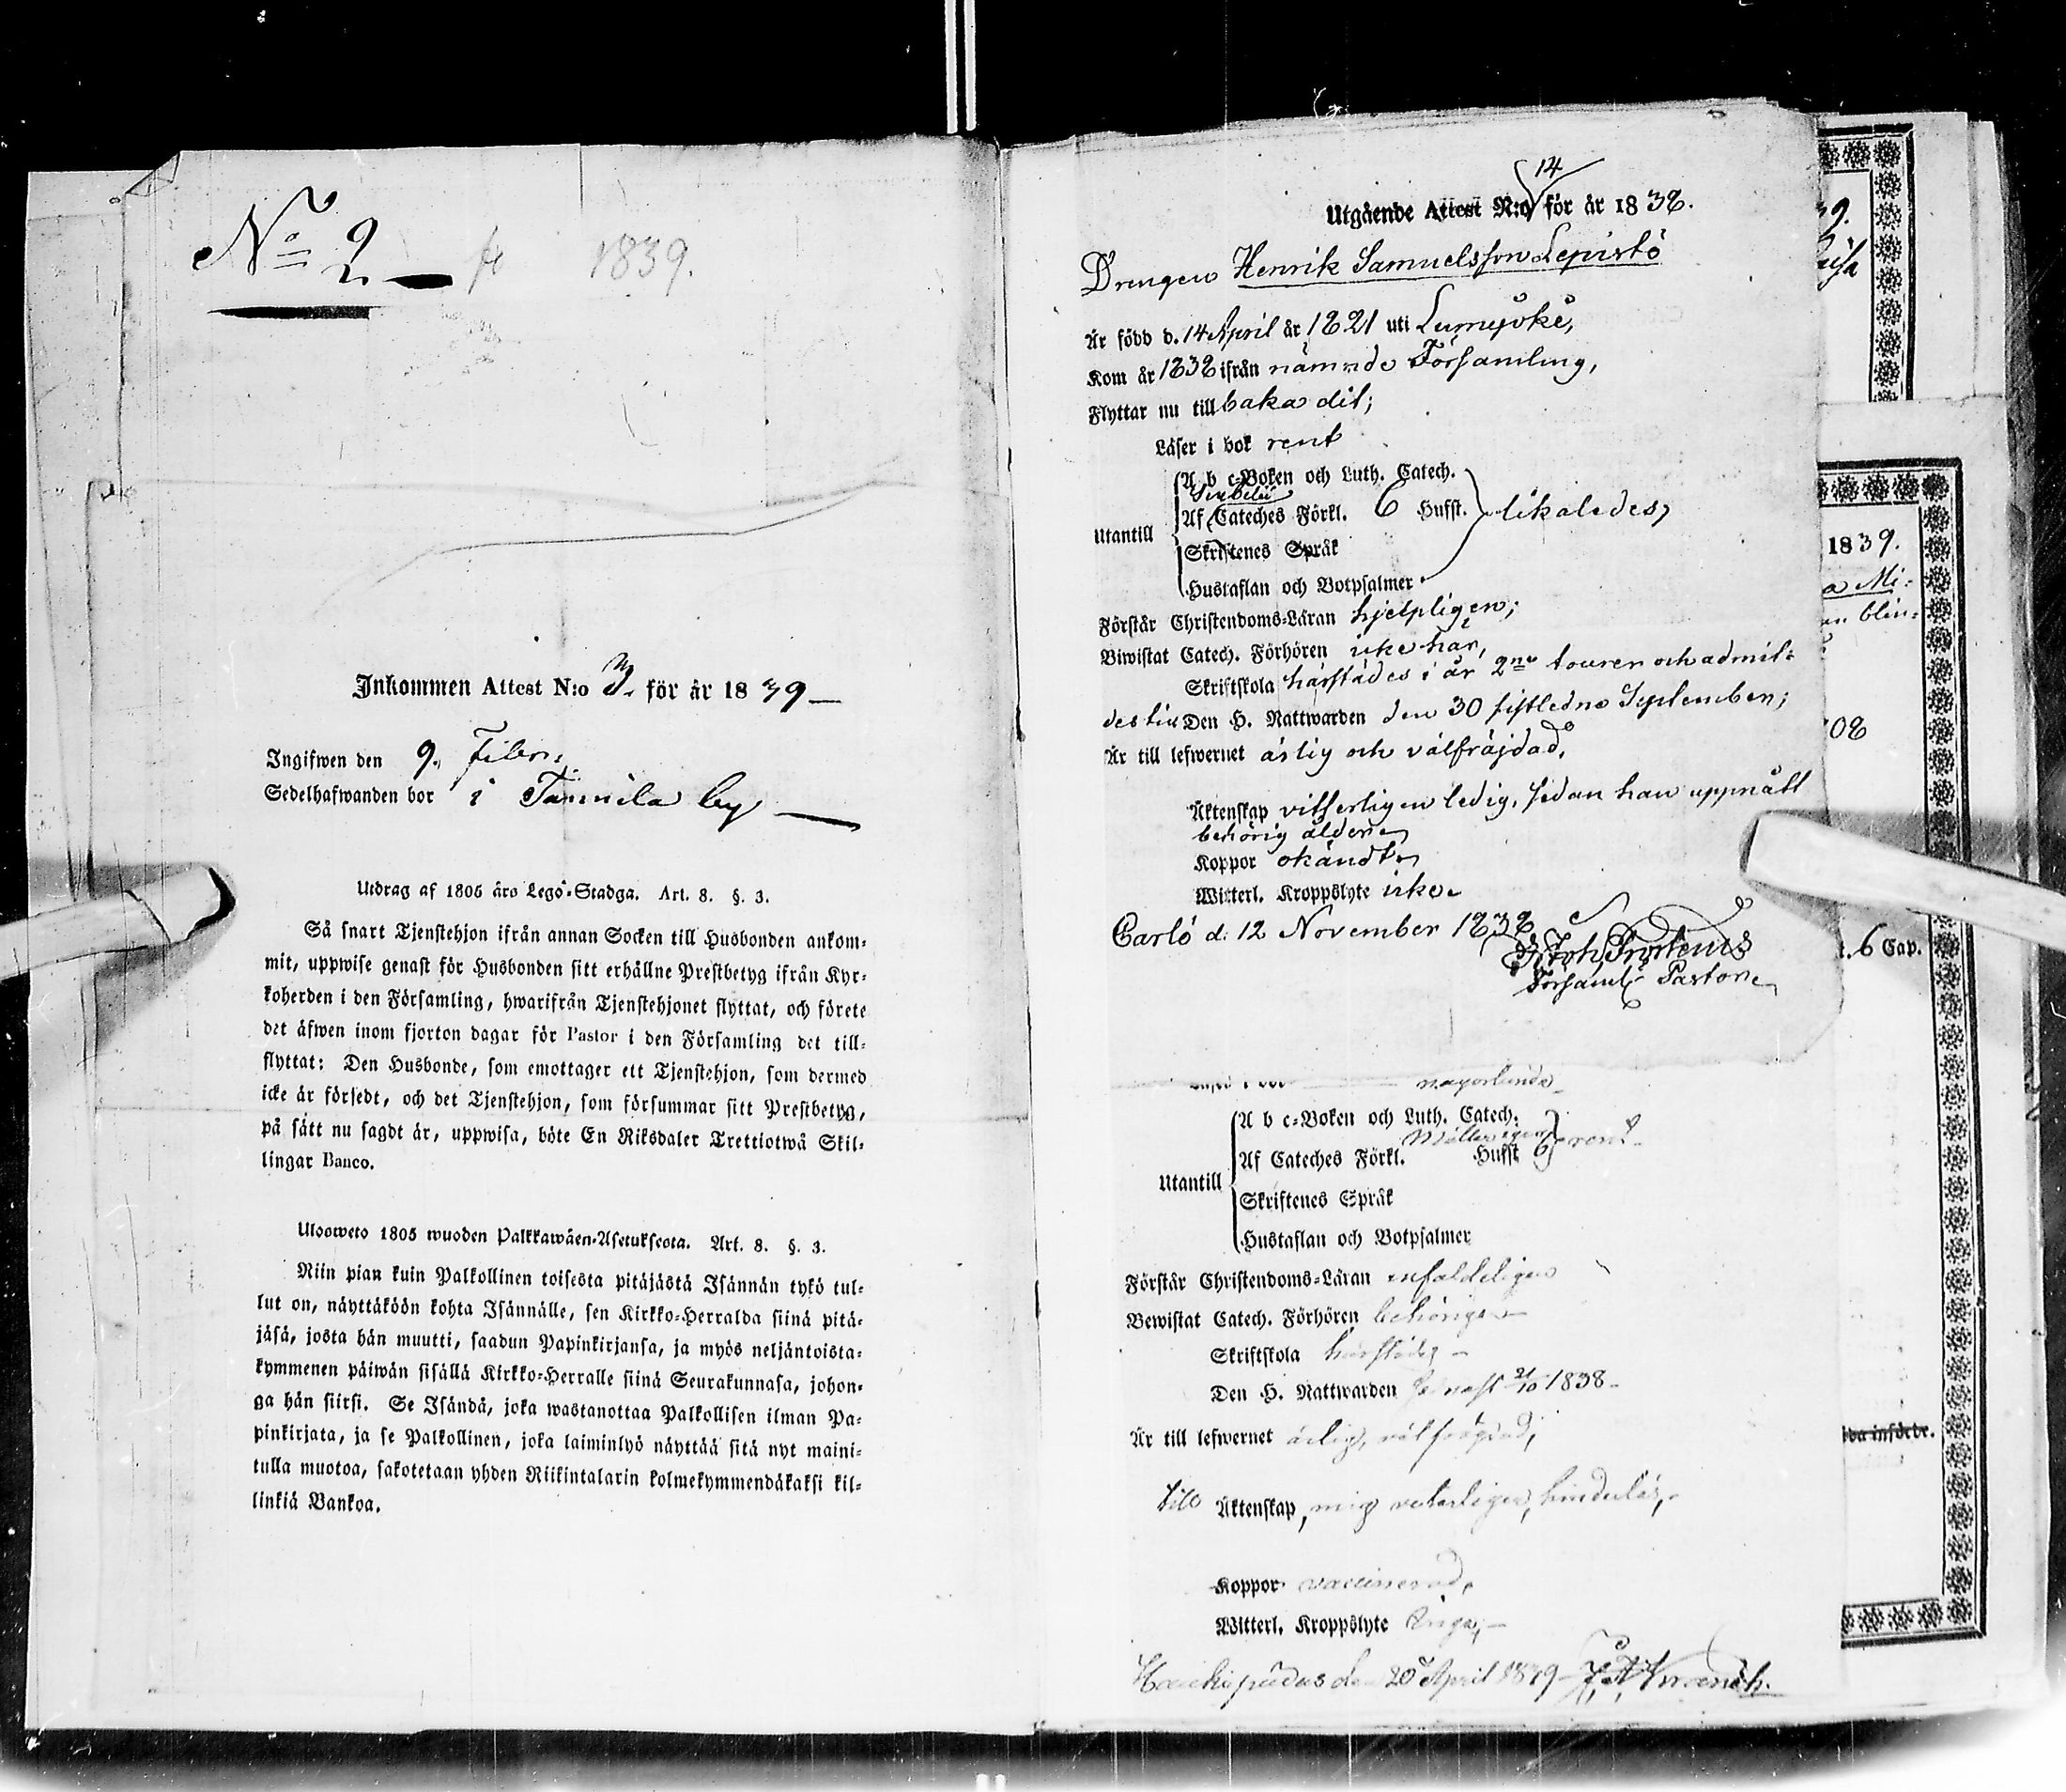 No 2 1839.
Inkommen Attest N:o 3. för år 1839
Ingifwen den 9. Febr.
Sedelhafwanden bor i Tammela by
Utdrag af 1805 års Lego-Stadga. Art. 8. §. 3.
Så snart Tjenstehjon ifrån annan Socken till Husbonden ankom-
mit, uppwise genast för Husbonden sitt erhållne Prestbetyg ifrån Kyr-
koherden i den Församling, hwarifrån Tjenstehjonet flyttat, och förete
det äfwen inom fjorton dagar för Pastor i den Församling det till-
flyttat: Den Husbonde, som emottager ett Tjenstehjon, som dermed
icke är försedt, och det Tjenstehjon, som försummar sitt Prestbetyg,
på sätt nu sagdt är, uppwisa, böte En Riksdaler Trettiotwå Skil-
lingar Banco.
Ulosweto 1805 wuoden Palkkawäen-Asetuksesta. Art. 8. §. 3.
Niin pian kuin Palkollinen toisesta pitäjästä Isännän tykö tul-
lut on, näyttäköön kohta Isännälle, sen Kirkko-Herralda siinä pitä-
jäsä, josta hän muutti, saadun Papinkirjansa, ja myös neljäntoista-
kymmenen päiwän sisällä Kirkko-Herralle siinä Seurakunnasa, johon-
ga hän siirsi. Se Isändä, joka wastanottaa Palkollisen ilman Pa-
pinkirjata, ja se Palkollinen, joka laiminlyö näyttää sitä nyt maini-
tulla muotoa, sakotetaan yhden Riikintalarin kolmekymmendäkaksi kil-
linkiä Bankoa.
14
Utgående Attest N:o för år 1838.
Drengen Henrik Samuelsson Lepistö
Är född d. 14 April år 1821 uti Lumijoki,
Kom år 1838 ifrån nämnde Församling,
Flyttar nu tillbaka dit;
Läser i bok rent
A b c-Boken och Luth. Catech.
Svebelii
Utantill Af Cateches Förkl. 6 Hufst. likaledes,
Skriftenes Språk
Hustaflan och Botpsalmer
Förstår Christendoms-Läran hjelpligen;
Biwistat Catech. Förhören icke här,
Skriftskola härstädes i år 2ne tourer och admit-
des till Den H. Nattwarden den 30 sistledne September;
Är till lefwernet ärlig och välfräjdad,
Äktenskap vitterligen ledig, sedan han uppnått
behörig ålder
Koppor okändt
Witterl. Kroppslyte icke.
Carlö d. 12 November 1838
Församl. Pastor
någorlunda
A b c-Boken och Luth. Catech.
Utantill Af Cateches Förkl. Hufst 6 rent
Skriftenes Språk
Hustaflan och Botpsalmer
Förstår Christendoms-Läran enfaldeligen
Bewistat Catech. Förhören behörigen
Skriftskola härstädes
Den H. Nattwarden senast 21/10 1838
Är till lefwernet ärlig, välfrägdad,
till Äktenskap, mig veterligen, hinderlös,
Koppor vaccinerad,
Witterl. Kroppslyte Inga,
Haukipudas den 20 April 1839
39.
1839.
a Mi-
an blin-
08
6 Cap.